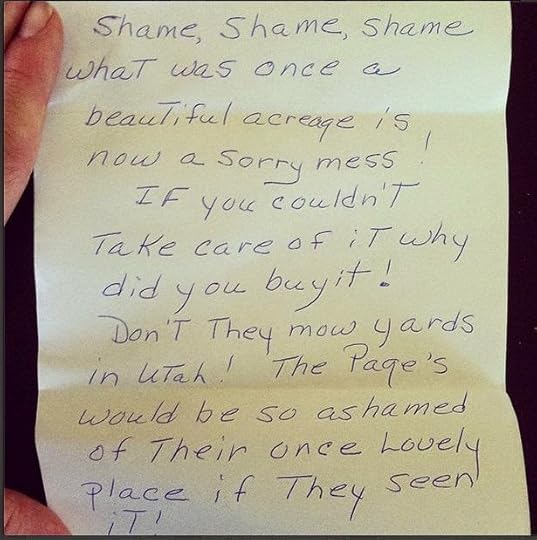 Shame, Shame, Shame
what was once a
beautiful acreage is
now a sorry mess!
If you couldn't
Take care of it why
did you buy it!
Don't They mow yards
in Utah! The Page's
would be so ashamed
of Their once Lovely
place if They seen
it!